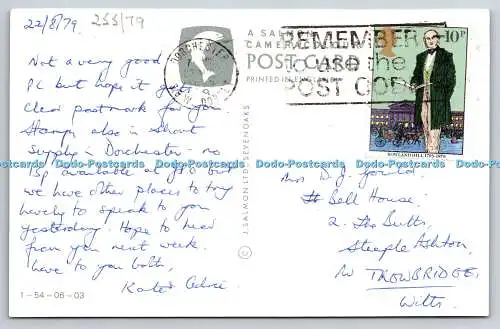 22/8/79 233/79
Not a very good
PC but hope it gets
clear postmark for you
Stamps also in short
supply in Dorchester - no
13p available at GPO but
we have other places to try
lovely to speak to you
yesterday. Hope to hear
from you next week.
Love to you both,
Kate
1-54-06-03
J. SALMON LTD. SEVENOAKS
©
A SALMON
CAMERACOLOUR
POST CARD
PRINTED IN ENGLAND
DORCHESTER
DORSET
REMEMBER
to use the
POST CODE
10P
ROWLAND HILL 1795-1879
Mrs D. J. Gould
Bell House,
2. The Butts,
Steeple Ashton,
Nr TROWBRIDGE,
Wilts
Dodo-Postcards Dodo-Postcards Dodo-Postcards Dodo-Postcards Dodo-Postcards